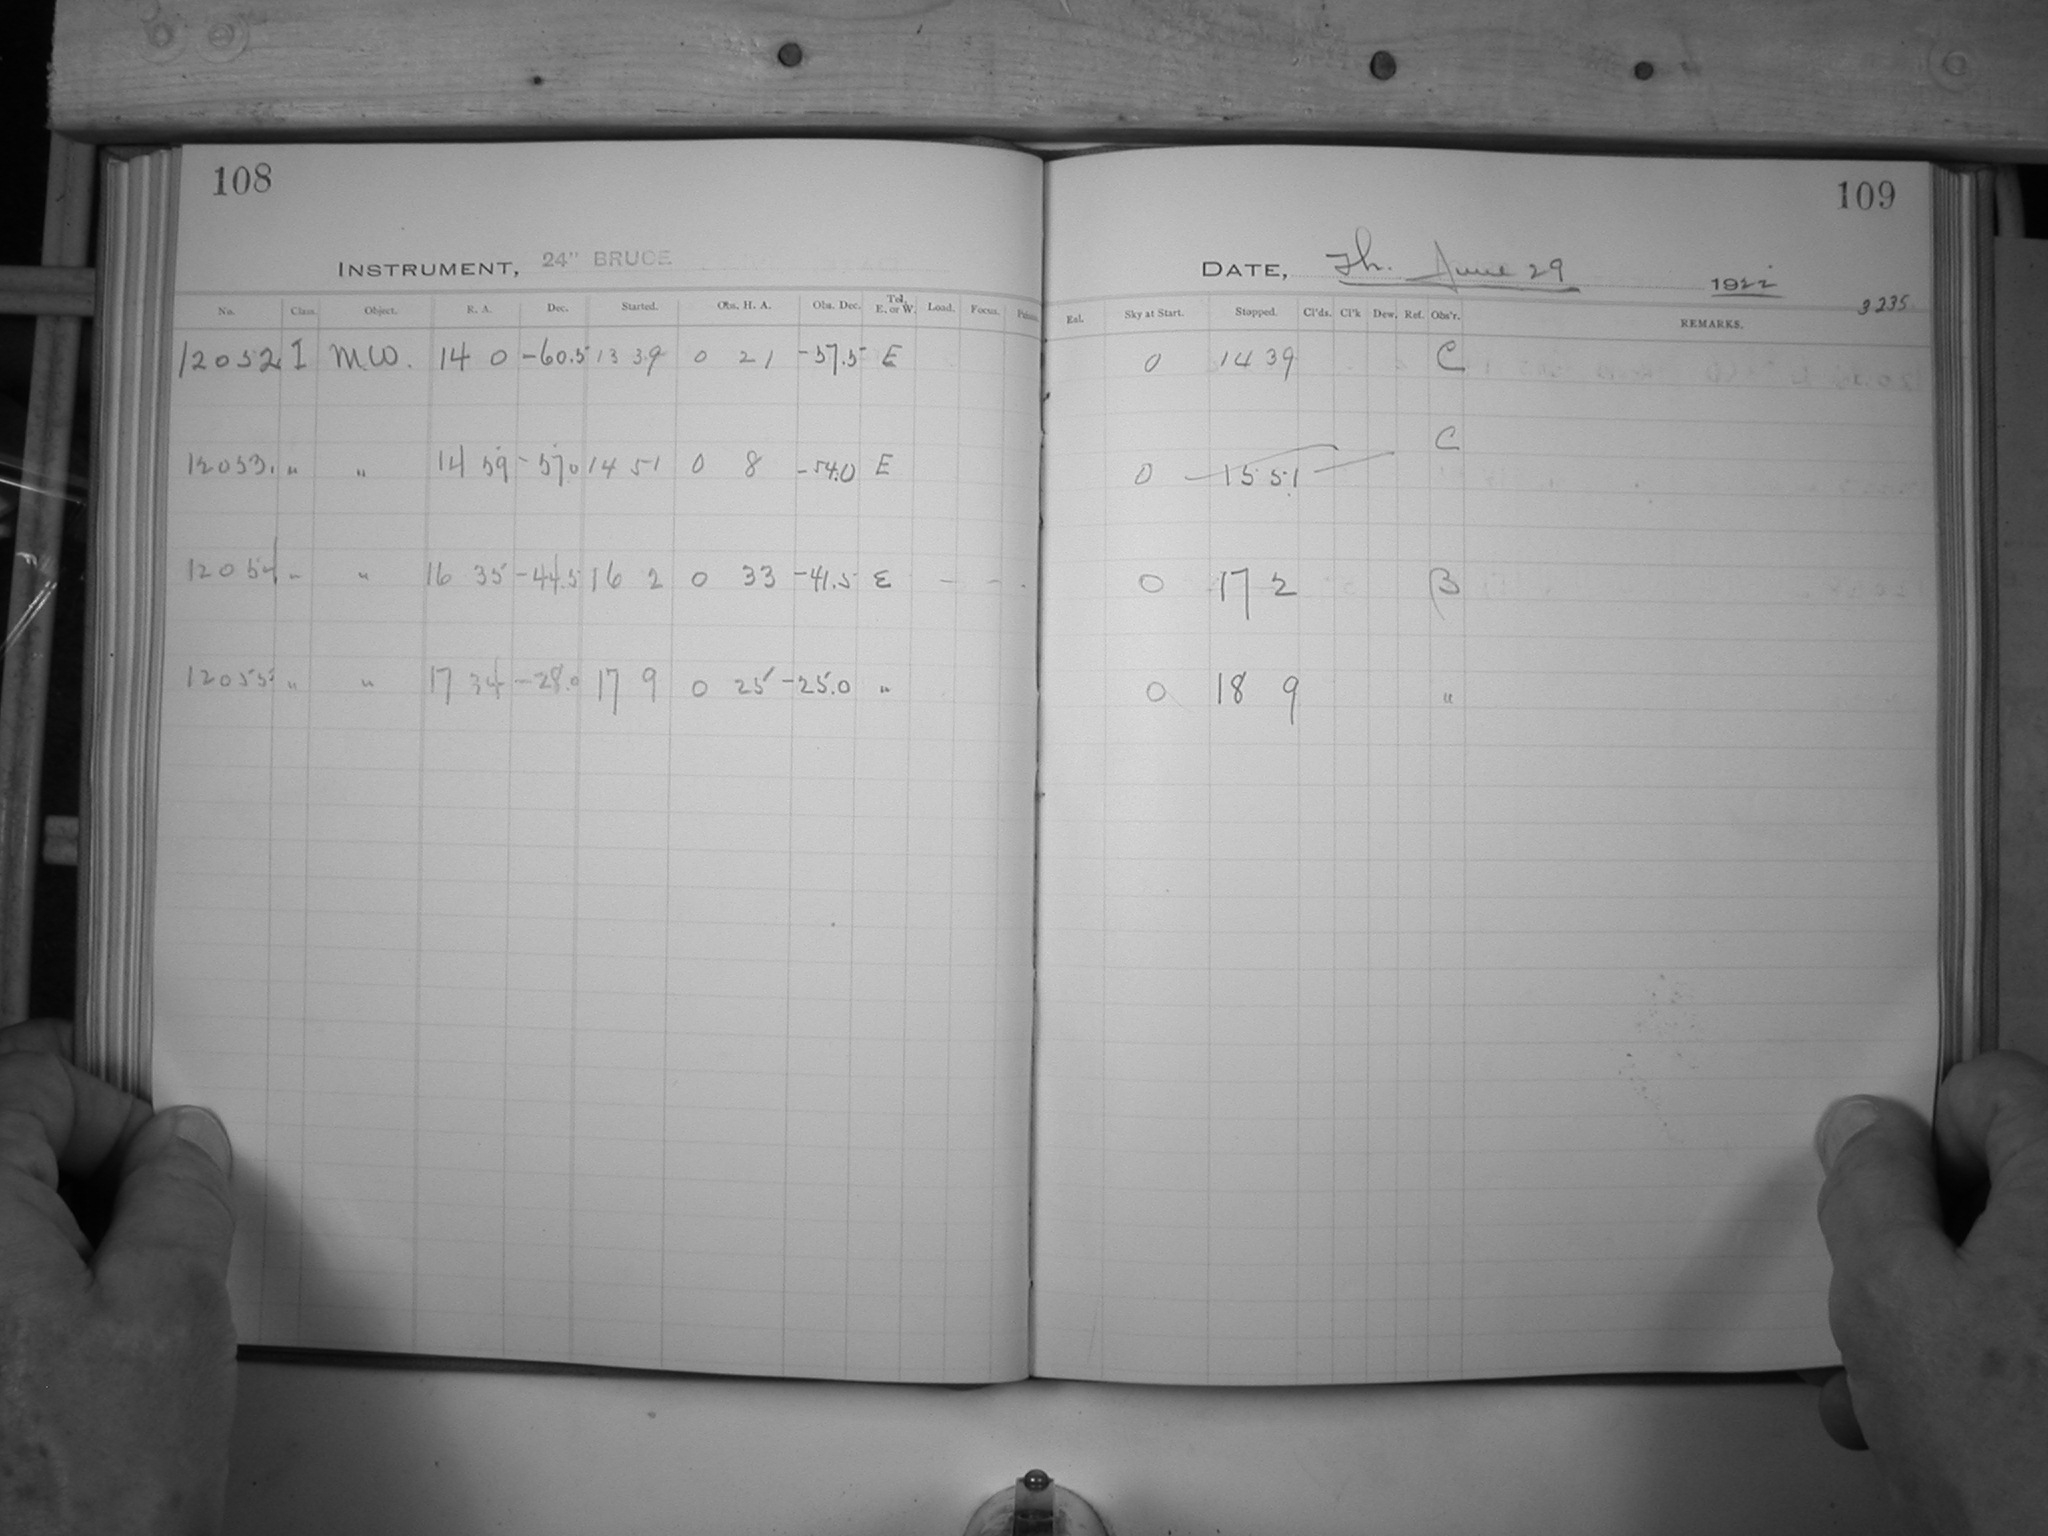 108
INSTRUMENT, 24" BRUCE
No. Class. Object. R. A. Dec. Started. Obs. H. A. Obs. Dec. Tel. E. or W. Load. Focus.
12052 I M.W. 14 0 -60.5 13 39 0 21 -57.5 E
12053. " " 14 59 -57.0 14 51 0 8 -54.0 E
12054 " " 16 35 -44.5 16 2 0 33 -41.5 E
12055 " " 17 34 -28.0 17 9 0 25 -25.0 "
109
DATE, Th. June 29 1922
3235
Sky at Start. Stopped. Cl'ds. Cl'k Dew. Ref. Obs'r. REMARKS.
0 14 39 C
C
0 15 51
0 17 2 B
0 18 9 "